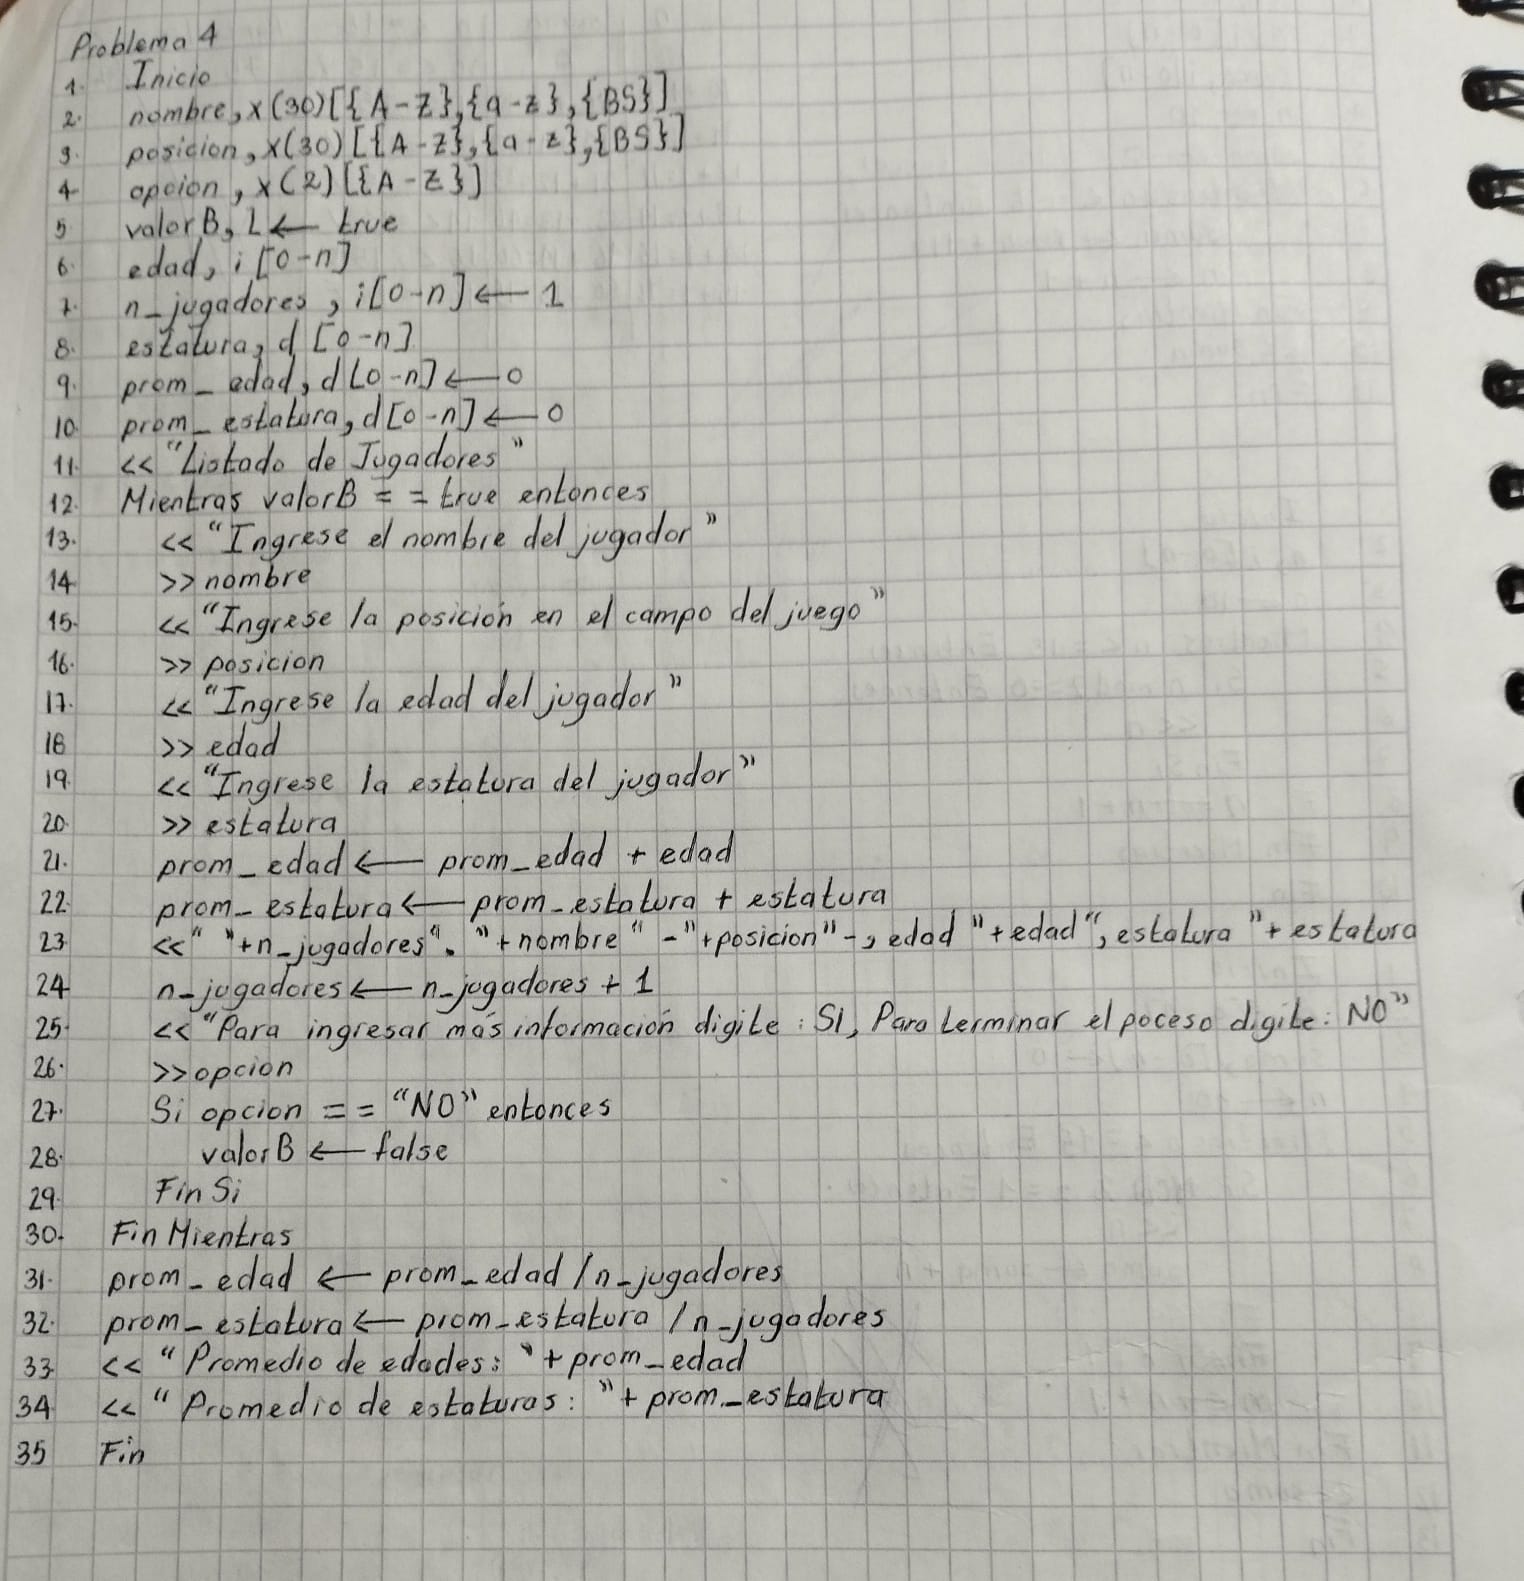 Problema 4
1. Inicio
2. nombre, x(30)[{A-Z},{a-z},{BS}]
3. posicion, x(30)[{A-Z},{a-z},{BS}]
4 opcion, x(2)[{A-Z}]
5 valorB, L ← true
6. edad, i [0-n]
7. n_jugadores, i[0-n] ← 1
8. estatura, d [0-n]
9. prom_edad, d[0-n] ← 0
10. prom_estatura, d[0-n] ← 0
11. << "Listado de Jugadores"
12. Mientras valorB == true entonces
13. << "Ingrese el nombre del jugador"
14 >> nombre
15. << "Ingrese la posición en el campo del juego"
16. >> posicion
17. << "Ingrese la edad del jugador"
18 >> edad
19. << "Ingrese la estatura del jugador"
20. >> estatura
21. prom_edad ← prom_edad + edad
22. prom_estatura ← prom_estatura + estatura
23 << " "+n_jugadores". "+nombre" - "+posicion"-, edad "+edad", estatura "+estatura
24 n_jugadores ← n_jugadores + 1
25. << "Para ingresar más información digite: SI, Para terminar el poceso digite: NO"
26. >> opcion
27. Si opcion == "NO" entonces
28. valorB ← false
29. Fin Si
30. Fin Mientras
31. prom_edad ← prom_edad / n_jugadores
32. prom_estatura ← prom_estatura / n_jugadores
33 << "Promedio de edades: "+ prom_edad
34 << "Promedio de estaturas: "+ prom_estatura
35 Fin